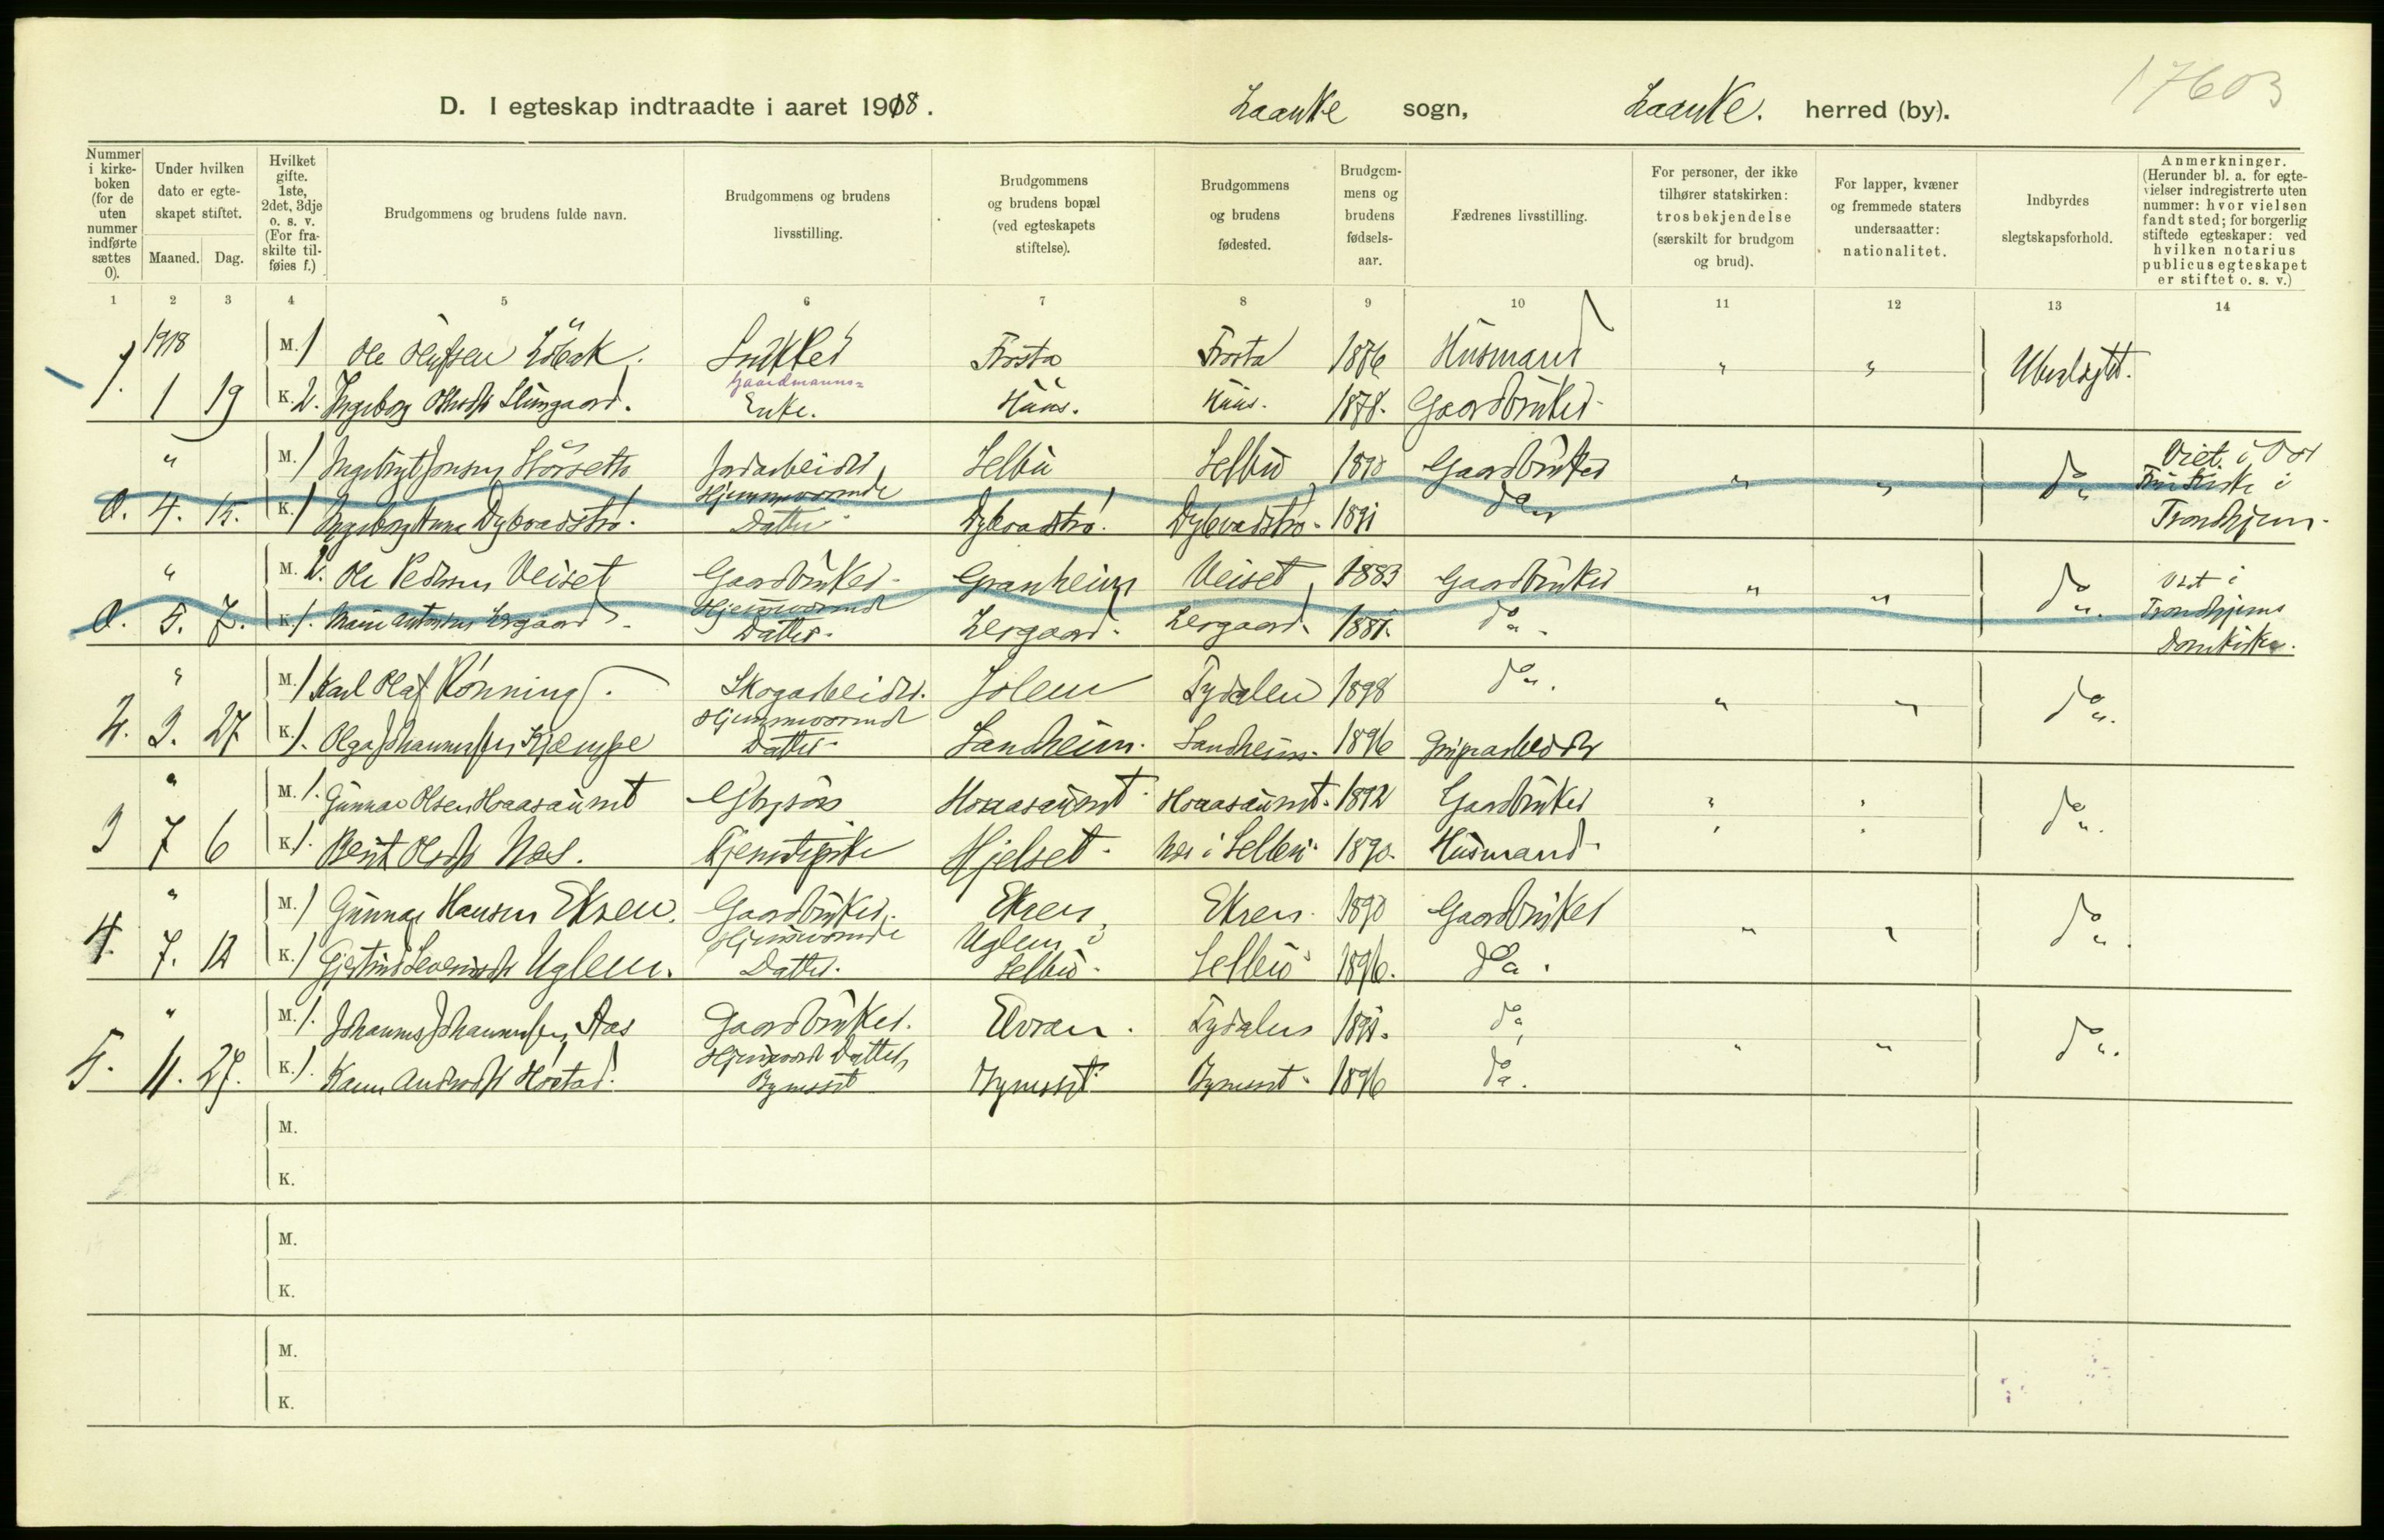 17603
D. I egteskap indtraadte i aaret 1918. Laanke sogn, Laanke. herred (by).
Nummer i kirkeboken (for de uten nummer indførte sættes 0).
Under hvilken dato er egteskapet stiftet.
Maaned. Dag.
Hvilket gifte. 1ste, 2det, 3dje o. s. v. (For fraskilte tilføies f.)
Brudgommens og brudens fulde navn.
Brudgommens og brudens livsstilling.
Brudgommens og brudens bopæl (ved egteskapets stiftelse).
Brudgommens og brudens fødested.
Brudgommens og brudens fødselsaar.
Fædrenes livsstilling.
For personer, der ikke tilhører statskirken: trosbekjendelse (særskilt for brudgom og brud).
For lapper, kvæner og fremmede staters undersaatter: nationalitet.
Indbyrdes slegtskapsforhold.
Anmerkninger. (Herunder bl. a. for egtevielser indregistrerte uten nummer: hvor vielsen fandt sted; for borgerlig stiftede egteskaper: ved hvilken notarius publicus egteskapet er stiftet o. s. v.)
1 2 3 4 5 6 7 8 9 10 11 12 13 14
1918 M. 1 Ole Olufsen Frosta Frosta 1876 Husmand " " Ubeslægtet.
Gaardmanns=
1. 1 19 K. 2. Ingeborg Enke. 1878. Gaardbruker
" M. 1 Ingebrigt Jonsen Jordarbeider Selbu Selbu 1890 Gaardbruker " " do Viet i Vor
Hjemmeværende Frue Kirke i
0. 4. 15. K. 1 Ingeborg Anna Dybvadstrø. Datter Dybvadstrø. Dybvadstrø. 1891 do Trondhjem.
" M. 2. Ole Pedersen Veiset Gaardbruker Granheim Veiset 1883 Gaardbruker " " do Viet i
Hjemmeværende Trondhjems
0. 5. 7. K. 1. Lergaard Datter. Lergaard. Lergaard. 1881. do Domkirke.
" M. 1 Karl Olaf Rønning. Skogarbeider. Tydalen 1898 do. " " do.
Hjemmeværende
2. 3. 27 K. 1. Olga Johannesen Kjæmpe Datter Sandheim. Sandheim. 1896
" M. 1. Gunnar Olsen Hoaasaunet Hoaasaunet Hoaasaunet. 1892 Gardbruker " " do.
3 7 6 K. 1. Berit Olsdt Næs. Tjenestepike Hjelset. Næs i Selbu. 1890. Husmand.
" M. 1 Gunnar Hansen Ekren. Gaardbruker. Ekren Ekren. 1890 Gaardbruker " " do.
Hjemmeværende Uglem i
4. 7. 12 K. 1 Uglem. Datter. Selbu. Selbu 1896. do.
" M. 1. Johannes Johannesen Aas Gaardbruker. Elvran. Tydalen do " " do.
Hjemmeværd Datter
5. 11. 27. K. 1. 1896 do.
M.
K.
M.
K.
M.
K.